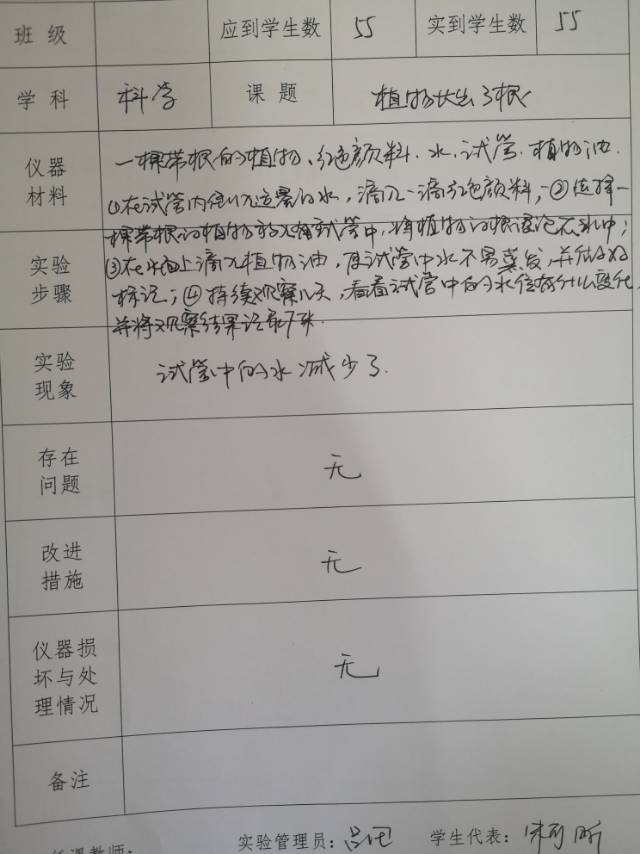 班级 应到学生数 55 实到学生数 55
学科 科学 课题 植物长出了根
仪器材料 一棵带根的植物、红色颜料、水、试管、植物油.
①在试管内倒入适量的水，滴入一滴红色颜料；②选择一
棵带根的植物放入有试管中，将植物的根浸泡在水中；
实验步骤 ③在水面上滴入植物油，使试管中水不易蒸发，并做好
标记；④持续观察几天，看看试管中的水位有什么变化，
并将观察结果记录下来.
实验现象 试管中的水减少了.
存在问题 无
改进措施 无
仪器损坏与处理情况 无
备注
任课教师： 实验管理员： 学生代表：